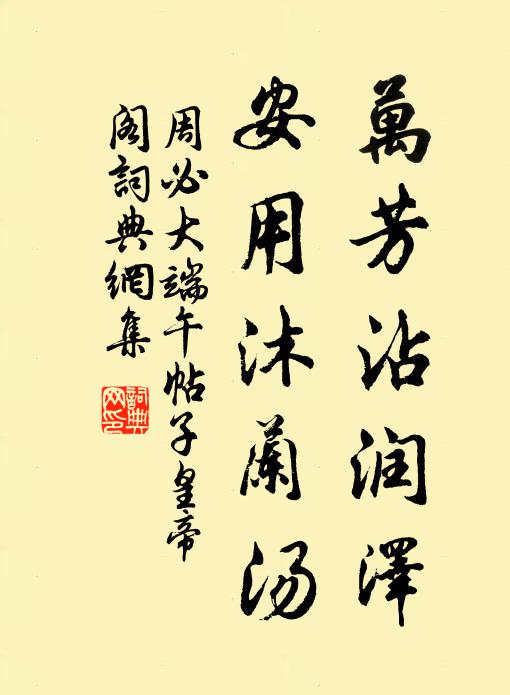 萬芳沾润澤
安用沐蘭汤
周必大端午帖子皇帝
阁詞典網集
詞典网印